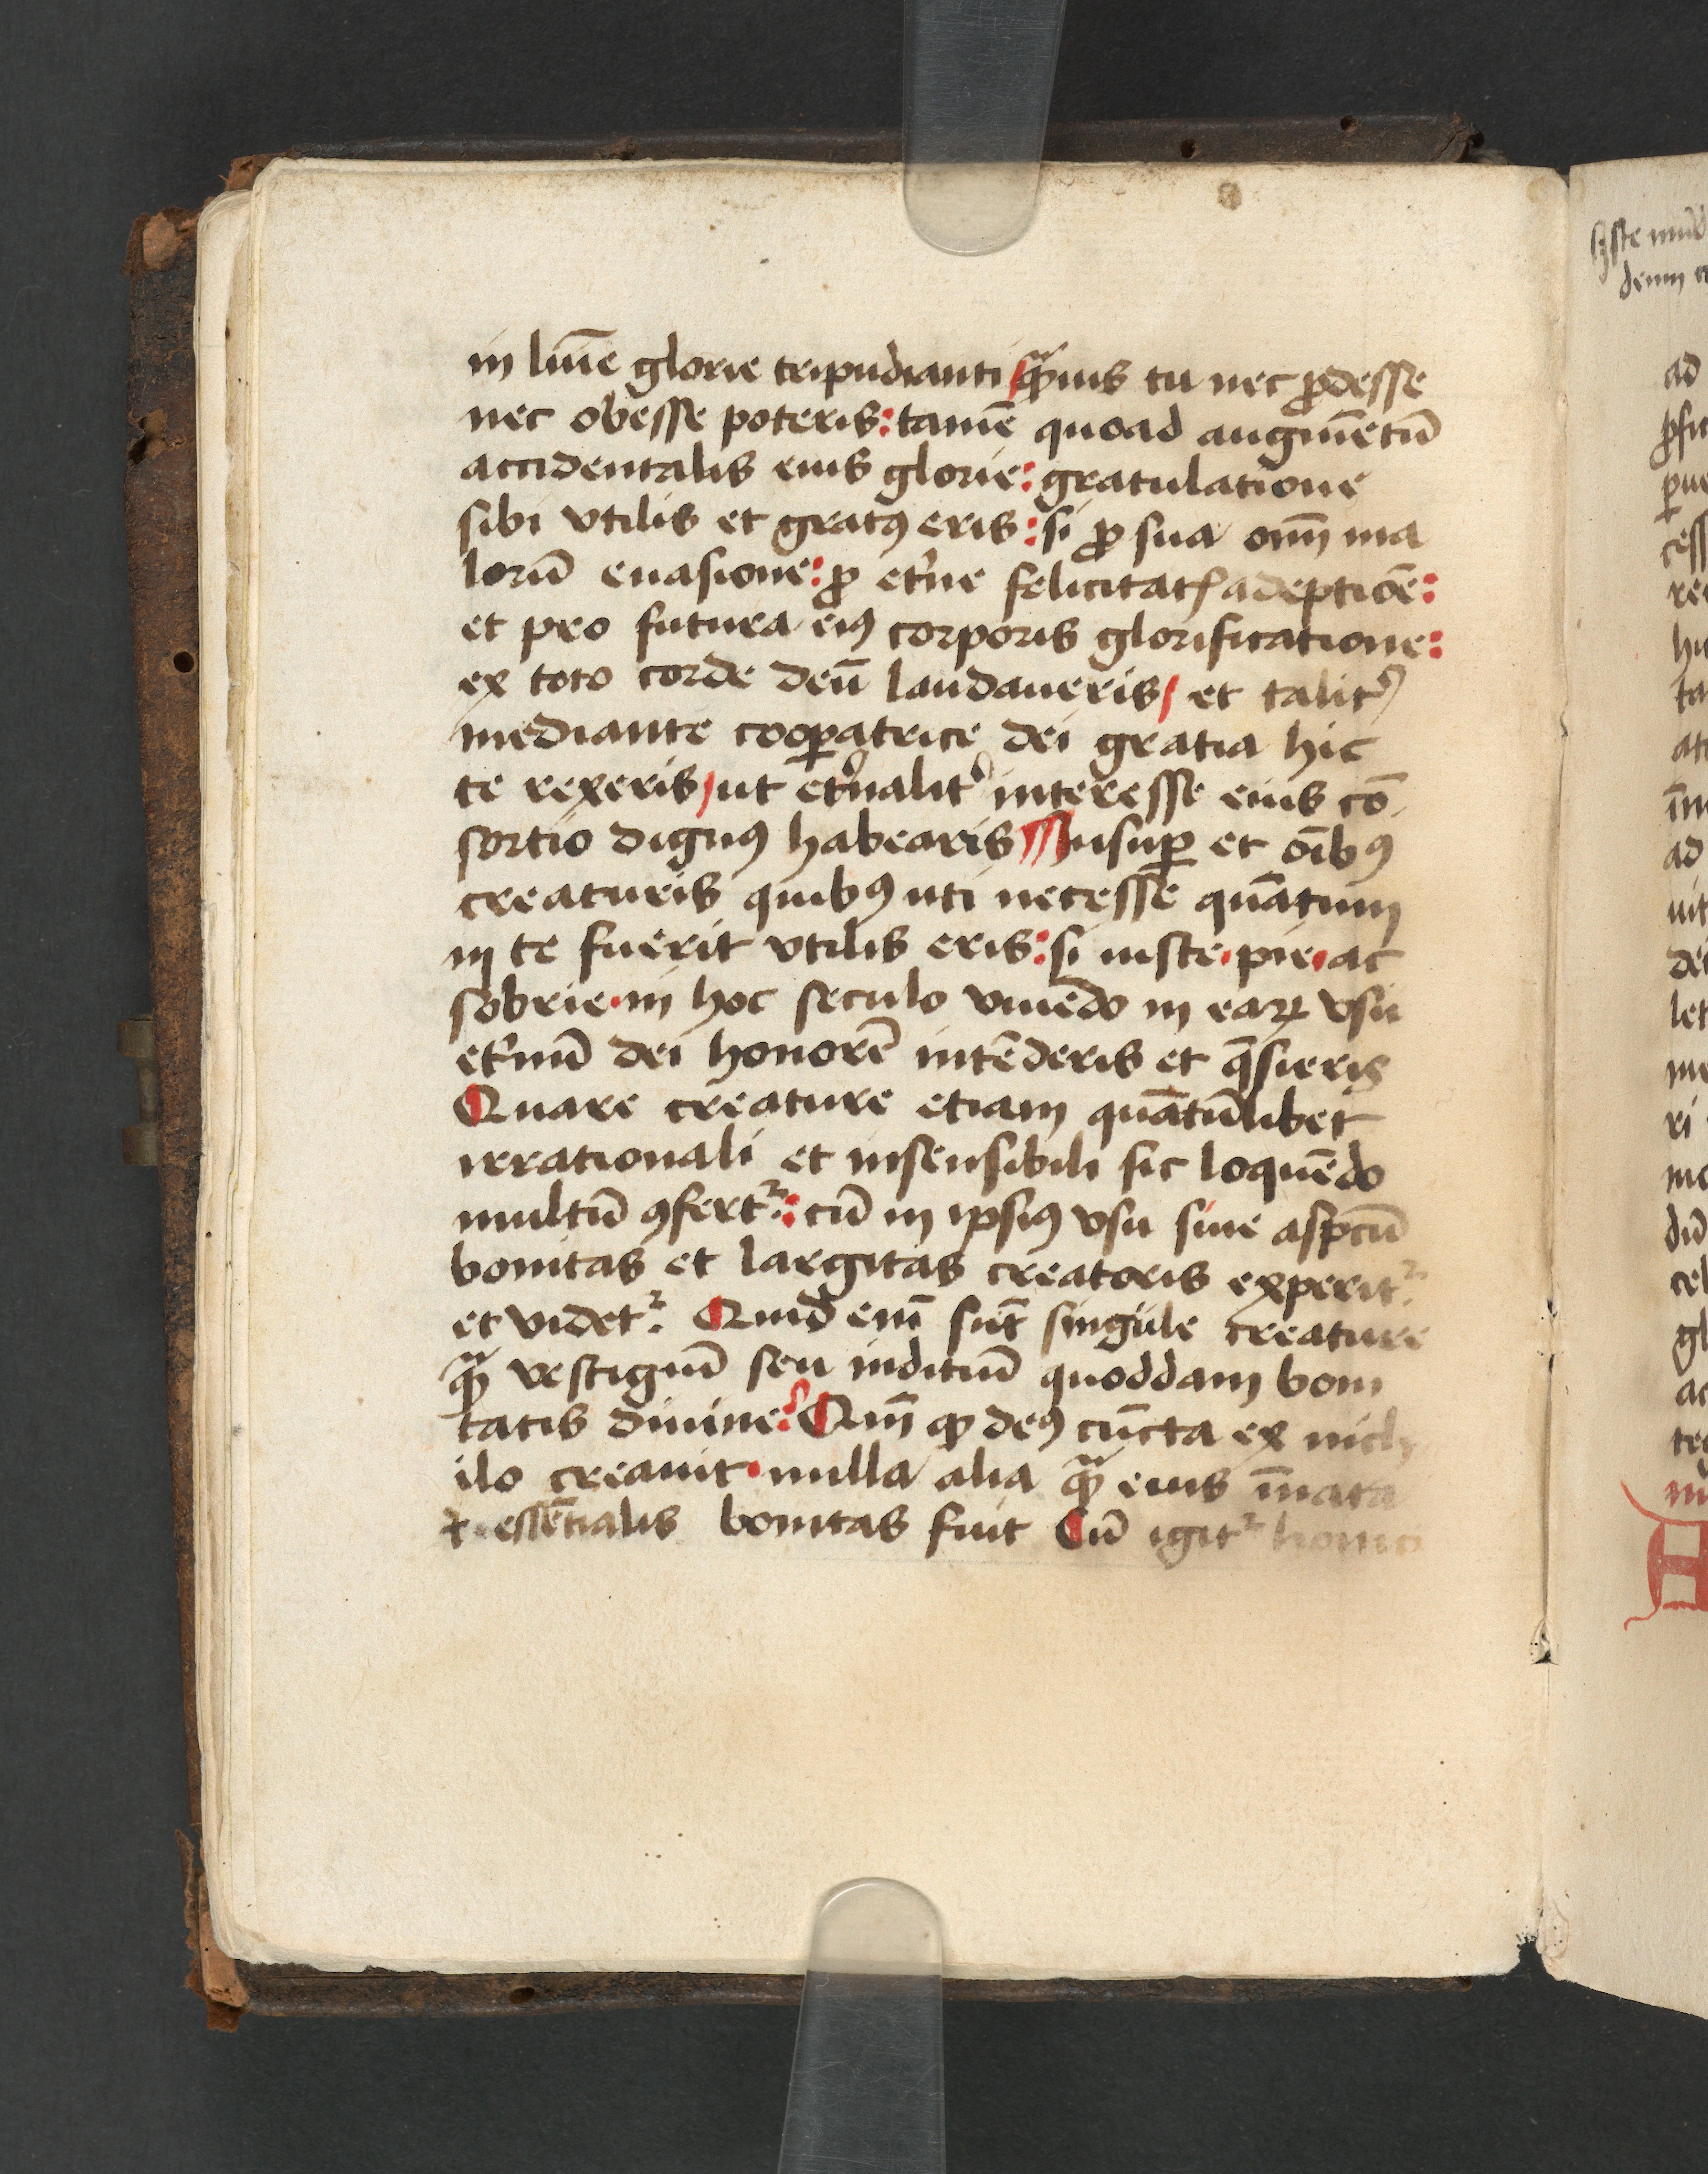 in lūīe glorie tripudianti / qͣꝑuis tu nec ꝓdesse
nec obesse poteris: tamē quoad augmētū
accidentalis eius glorie: gratulatione
sibi vtilis et gratꝯ eris: si ꝓ sua om̄ ma
lorū euasione: ꝓ et͛ne felicitatꝭ adeptiōe:
et pro futura eiꝯ corporis glorificatione:
ex toto corde deū laudaueris / et talit͛
mediante cooꝑatrice dei gratia hic
te rexeris / ut et͛nalit͛ interesse eius cō
sortio dignꝯ habearis Insuꝑ et oībꝯ
creaturis quibꝯ uti necesse quātum
in te fuerit vtilis eris: si iuste · pie · ac
sobrie · in hoc seculo viuēdo in eaꝝ vsu
et͛nū dei honorē intēderis et q̄sieris
Quare creature etiam quātūlibet
irrationali et insensibili sic loquēdo
multū ꝯfertᷣ: cū in ipsiꝯ vsu siue aspcū
bonitas et largitas creatoris experitᷣ
et videtᷣ. Quid em̄ sūt singule creature
qͣꝑ vestigiū seu inditiū quoddam boni
tatis diuine? Qm̄ ꝙ deꝯ cūcta ex nich
ilo creauit · nulla alia qͣꝑ eius īnata
⁊ essētialis bonitas fuit Cū igitᷣ
ad